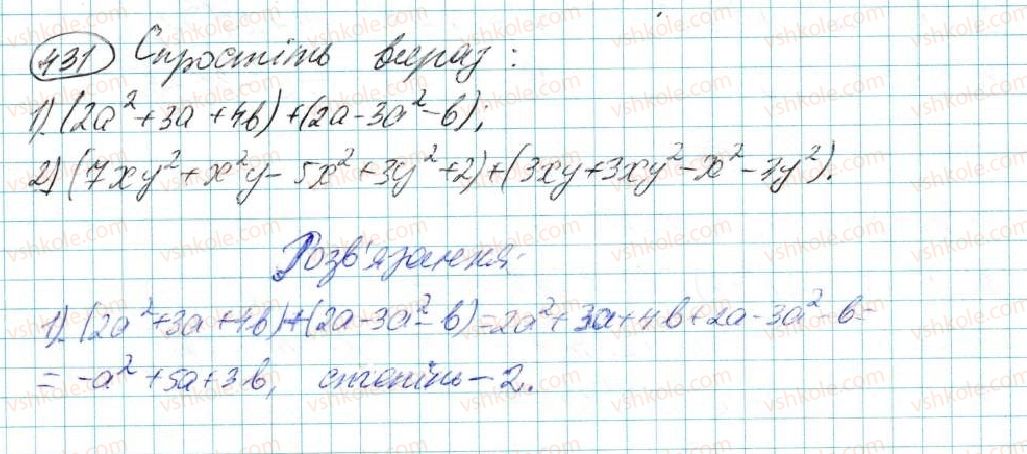 431 Спростіть вираз:
1) (2a²+3a+4b)+(2a-3a²-b);
2) (7xy²+x²y-5x²+3y²+2)+(3xy+3xy²-x²-3y²).
Розв'язання.
1) (2a²+3a+4b)+(2a-3a²-b)=2a²+3a+4b+2a-3a²-b=
= -a²+5a+3b, степінь-2.